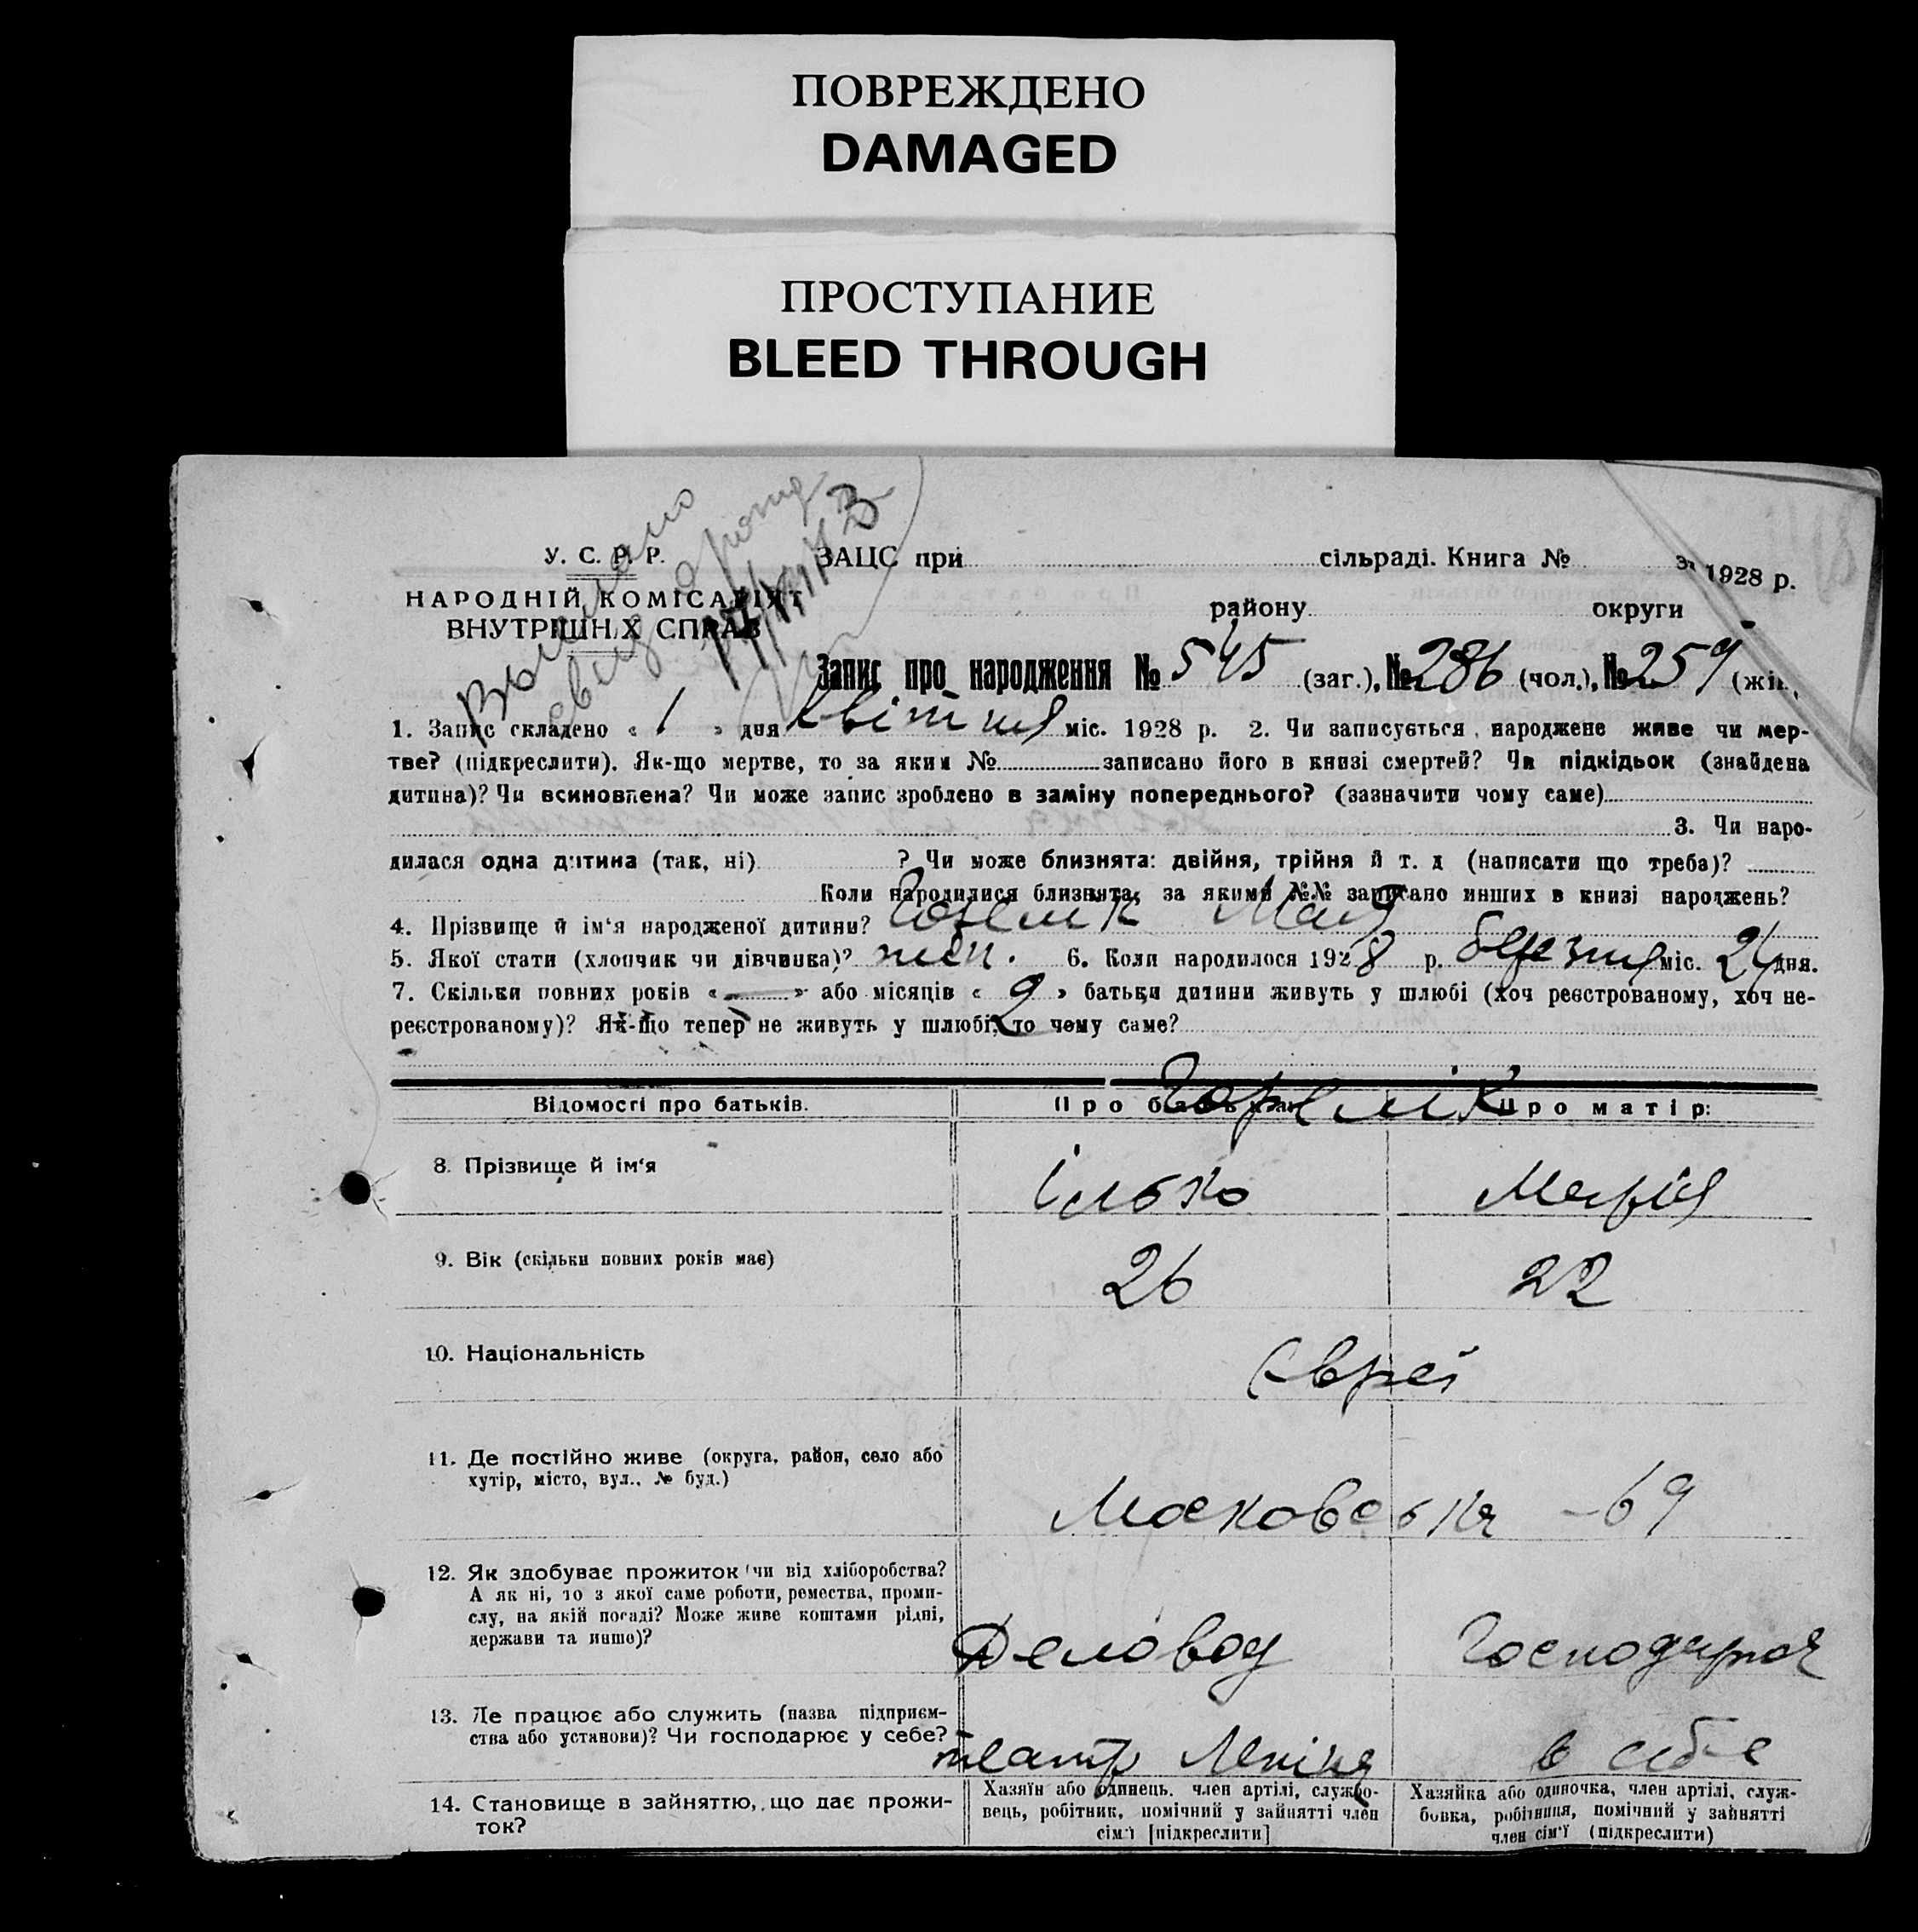 ПОВРЕЖДЕНО
DAMAGED
ПРОСТУПАНИЕ
BLEED THROUGH
У. С. Р. Р.
НАРОДНІЙ КОМІСАРІЯТ
ВНУТРІШНІХ СПРАВ
ЗАЦС при сільраді. Книга № 1928 р.
району округи
Запис про народження № 545 (заг.), № 286 (чол.), № 259 (жін.
1. Запис складено « 1 » дня квітня міс. 1928 р. 2. Чи записується народжене живе чи мер-
тве? (підкреслити). Як-що мертве, то за яким № записано його в книзі смертей? Чи підкідьок (знайдена
дитина)? Чи всиновлена? Чи може запис зроблено в заміну попереднього? (зазначити чому саме)
3. Чи наро-
дилася одна дитина (так, ні) ? Чи може близнята: двійня, трійня й т. д (написати що треба)?
Коли народилися близнята, за якими №№ записано инших в книзі народжень?
4. Прізвище й ім'я народженої дитини? Мая
5. Якої стати (хлопчик чи дівчинка)? жін. 6. Коли народилося 1928 р. березня міс. 24 дня.
7. Скільки повних років « — » або місяців « 9 » батьки дитини живуть у шлюбі (хоч реєстрованому, хоч не-
реєстрованому)? Як-що тепер не живуть у шлюбі, то чому саме?
Відомості про батьків. Про батька: Про матір:
8. Прізвище й ім'я Ілько Марія
9. Вік (скільки повних років має) 26 22
10. Національність Євреї
11. Де постійно живе (округа, район, село або
хутір, місто, вул., № буд.)
Московська - 69
12. Як здобуває прожиток чи від хліборобства?
А як ні, то з якої саме роботи, ремества, проми-
слу, на якій посаді? Може живе коштами рідні,
держави та инше)?
Деловод Господарка
13. Де працює або служить (назва підприєм-
ства або установи)? Чи господарює у себе?
театр Леніна в себе
14. Становище в зайняттю, що дає прожи-
ток?
Хазяїн або одинець, член артілі, службо-
вець, робітник, помічний у зайнятті член
сім'ї [підкреслити]
Хазяйка або одиночка, член артілі, служ-
бовка, робітниця, помічний у зайнятті
член сім'ї (підкреслити)